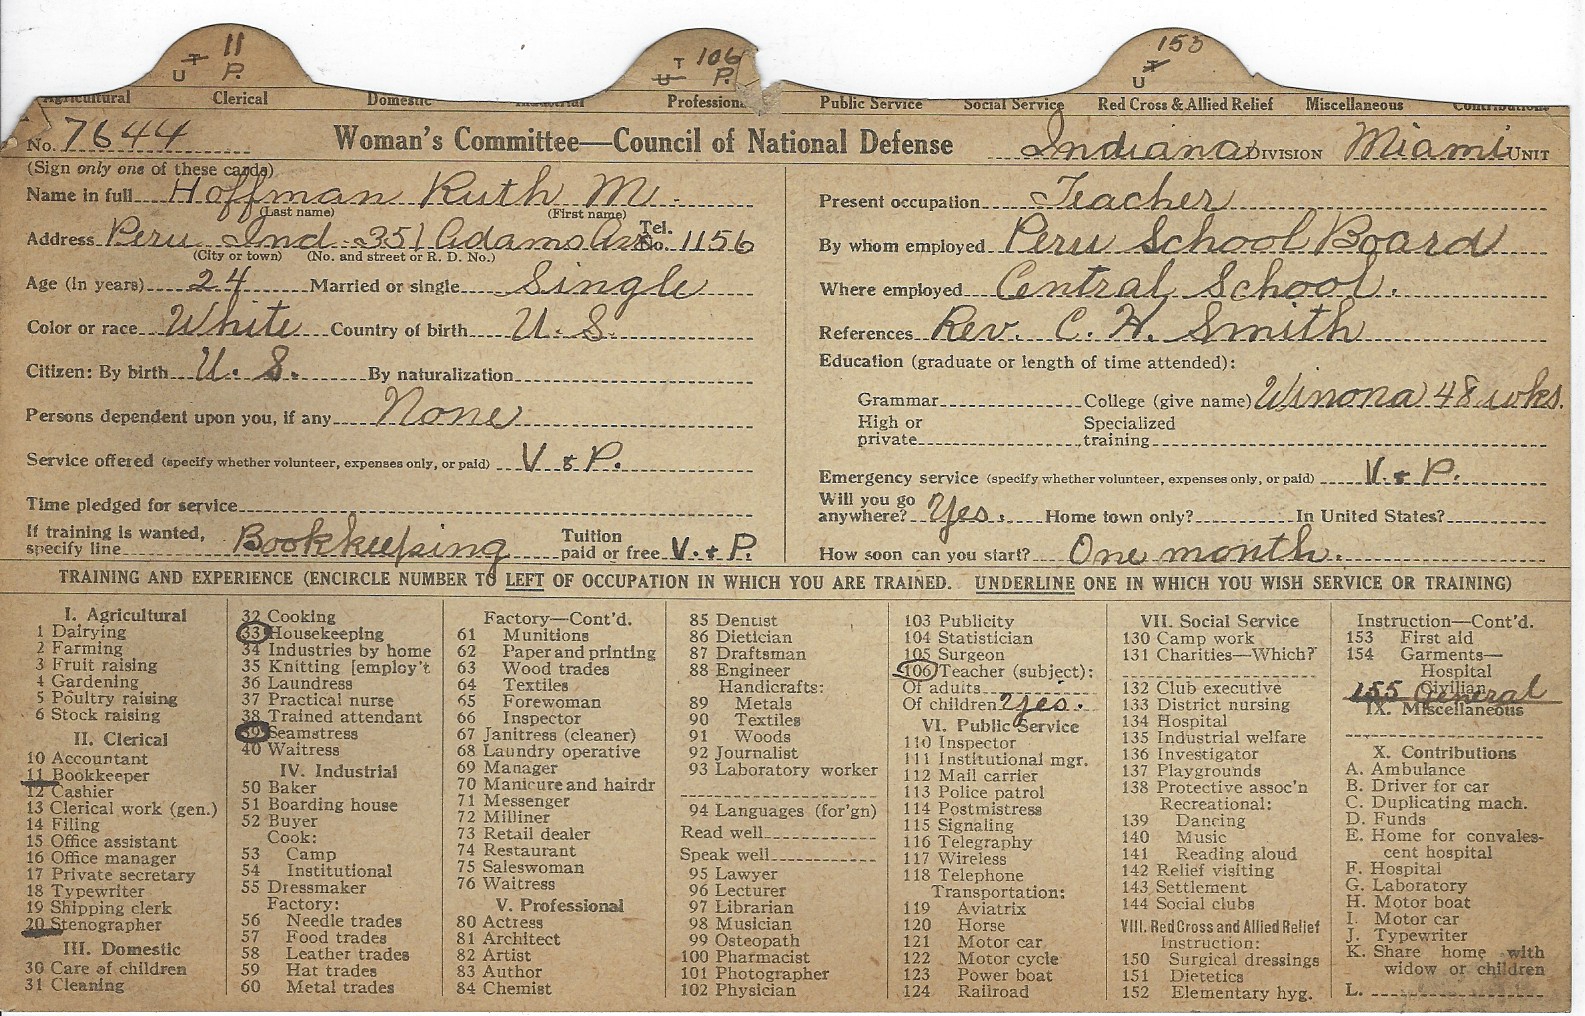 11
U T P.
T 106
U P.
153
U T
Agricultural Clerical Domestic Industrial Professional Public Service Social Service Red Cross & Allied Relief Miscellaneous Contributions
No. 7644 Woman's Committee—Council of National Defense Indiana DIVISION Miami UNIT
(Sign only one of these cards)
Name in full Hoffman Ruth M.
(Last name) (First name)
Address Peru Ind 351 Adams Tel. No. 1156
(City or town) (No. and street or R. D. No.)
Age (in years) 24 Married or single Single
Color or race White Country of birth U. S.
Citizen: By birth U. S. By naturalization
Persons dependent upon you, if any None
Service offered (specify whether volunteer, expenses only, or paid) V & P.
Time pledged for service
If training is wanted, specify line Bookkeeping Tuition paid or free V. & P.
Present occupation Teacher
By whom employed Peru School Board
Where employed Central School.
References Rev. C. H. Smith
Education (graduate or length of time attended):
Grammar College (give name) Winona 48 wks.
High or private Specialized training
Emergency service (specify whether volunteer, expenses only, or paid) V. & P.
Will you go anywhere? Yes. Home town only? In United States?
How soon can you start? One month.
TRAINING AND EXPERIENCE (ENCIRCLE NUMBER TO LEFT OF OCCUPATION IN WHICH YOU ARE TRAINED. UNDERLINE ONE IN WHICH YOU WISH SERVICE OR TRAINING)
I. Agricultural
1 Dairying
2 Farming
3 Fruit raising
4 Gardening
5 Poultry raising
6 Stock raising
II. Clerical
10 Accountant
11 Bookkeeper
12 Cashier
13 Clerical work (gen.)
14 Filing
15 Office assistant
16 Office manager
17 Private secretary
18 Typewriter
19 Shipping clerk
20 Stenographer
III. Domestic
30 Care of children
31 Cleaning
32 Cooking
33 Housekeeping
34 Industries by home
35 Knitting [employ't
36 Laundress
37 Practical nurse
38 Trained attendant
39 Seamstress
40 Waitress
IV. Industrial
50 Baker
51 Boarding house
52 Buyer
Cook:
53 Camp
54 Institutional
55 Dressmaker
Factory:
56 Needle trades
57 Food trades
58 Leather trades
59 Hat trades
60 Metal trades
Factory—Cont'd.
61 Munitions
62 Paper and printing
63 Wood trades
64 Textiles
65 Forewoman
66 Inspector
67 Janitress (cleaner)
68 Laundry operative
69 Manager
70 Manicure and hairdr
71 Messenger
72 Milliner
73 Retail dealer
74 Restaurant
75 Saleswoman
76 Waitress
V. Professional
80 Actress
81 Architect
82 Artist
83 Author
84 Chemist
85 Dentist
86 Dietician
87 Draftsman
88 Engineer
Handicrafts:
89 Metals
90 Textiles
91 Woods
92 Journalist
93 Laboratory worker
94 Languages (for'gn)
Read well
Speak well
95 Lawyer
96 Lecturer
97 Librarian
98 Musician
99 Osteopath
100 Pharmacist
101 Photographer
102 Physician
103 Publicity
104 Statistician
105 Surgeon
106 Teacher (subject):
Of adults
Of children Yes.
VI. Public Service
110 Inspector
111 Institutional mgr.
112 Mail carrier
113 Police patrol
114 Postmistress
115 Signaling
116 Telegraphy
117 Wireless
118 Telephone
Transportation:
119 Aviatrix
120 Horse
121 Motor car
122 Motor cycle
123 Power boat
124 Railroad
VII. Social Service
130 Camp work
131 Charities—Which?
132 Club executive
133 District nursing
134 Hospital
135 Industrial welfare
136 Investigator
137 Playgrounds
138 Protective assoc'n
Recreational:
139 Dancing
140 Music
141 Reading aloud
142 Relief visiting
143 Settlement
144 Social clubs
VIII. Red Cross and Allied Relief
Instruction:
150 Surgical dressings
151 Dietetics
152 Elementary hyg.
Instruction—Cont'd.
153 First aid
154 Garments—
Hospital
Civilian
155 General
IX. Miscellaneous
X. Contributions
A. Ambulance
B. Driver for car
C. Duplicating mach.
D. Funds
E. Home for convales-
cent hospital
F. Hospital
G. Laboratory
H. Motor boat
I. Motor car
J. Typewriter
K. Share home with
widow or children
L.